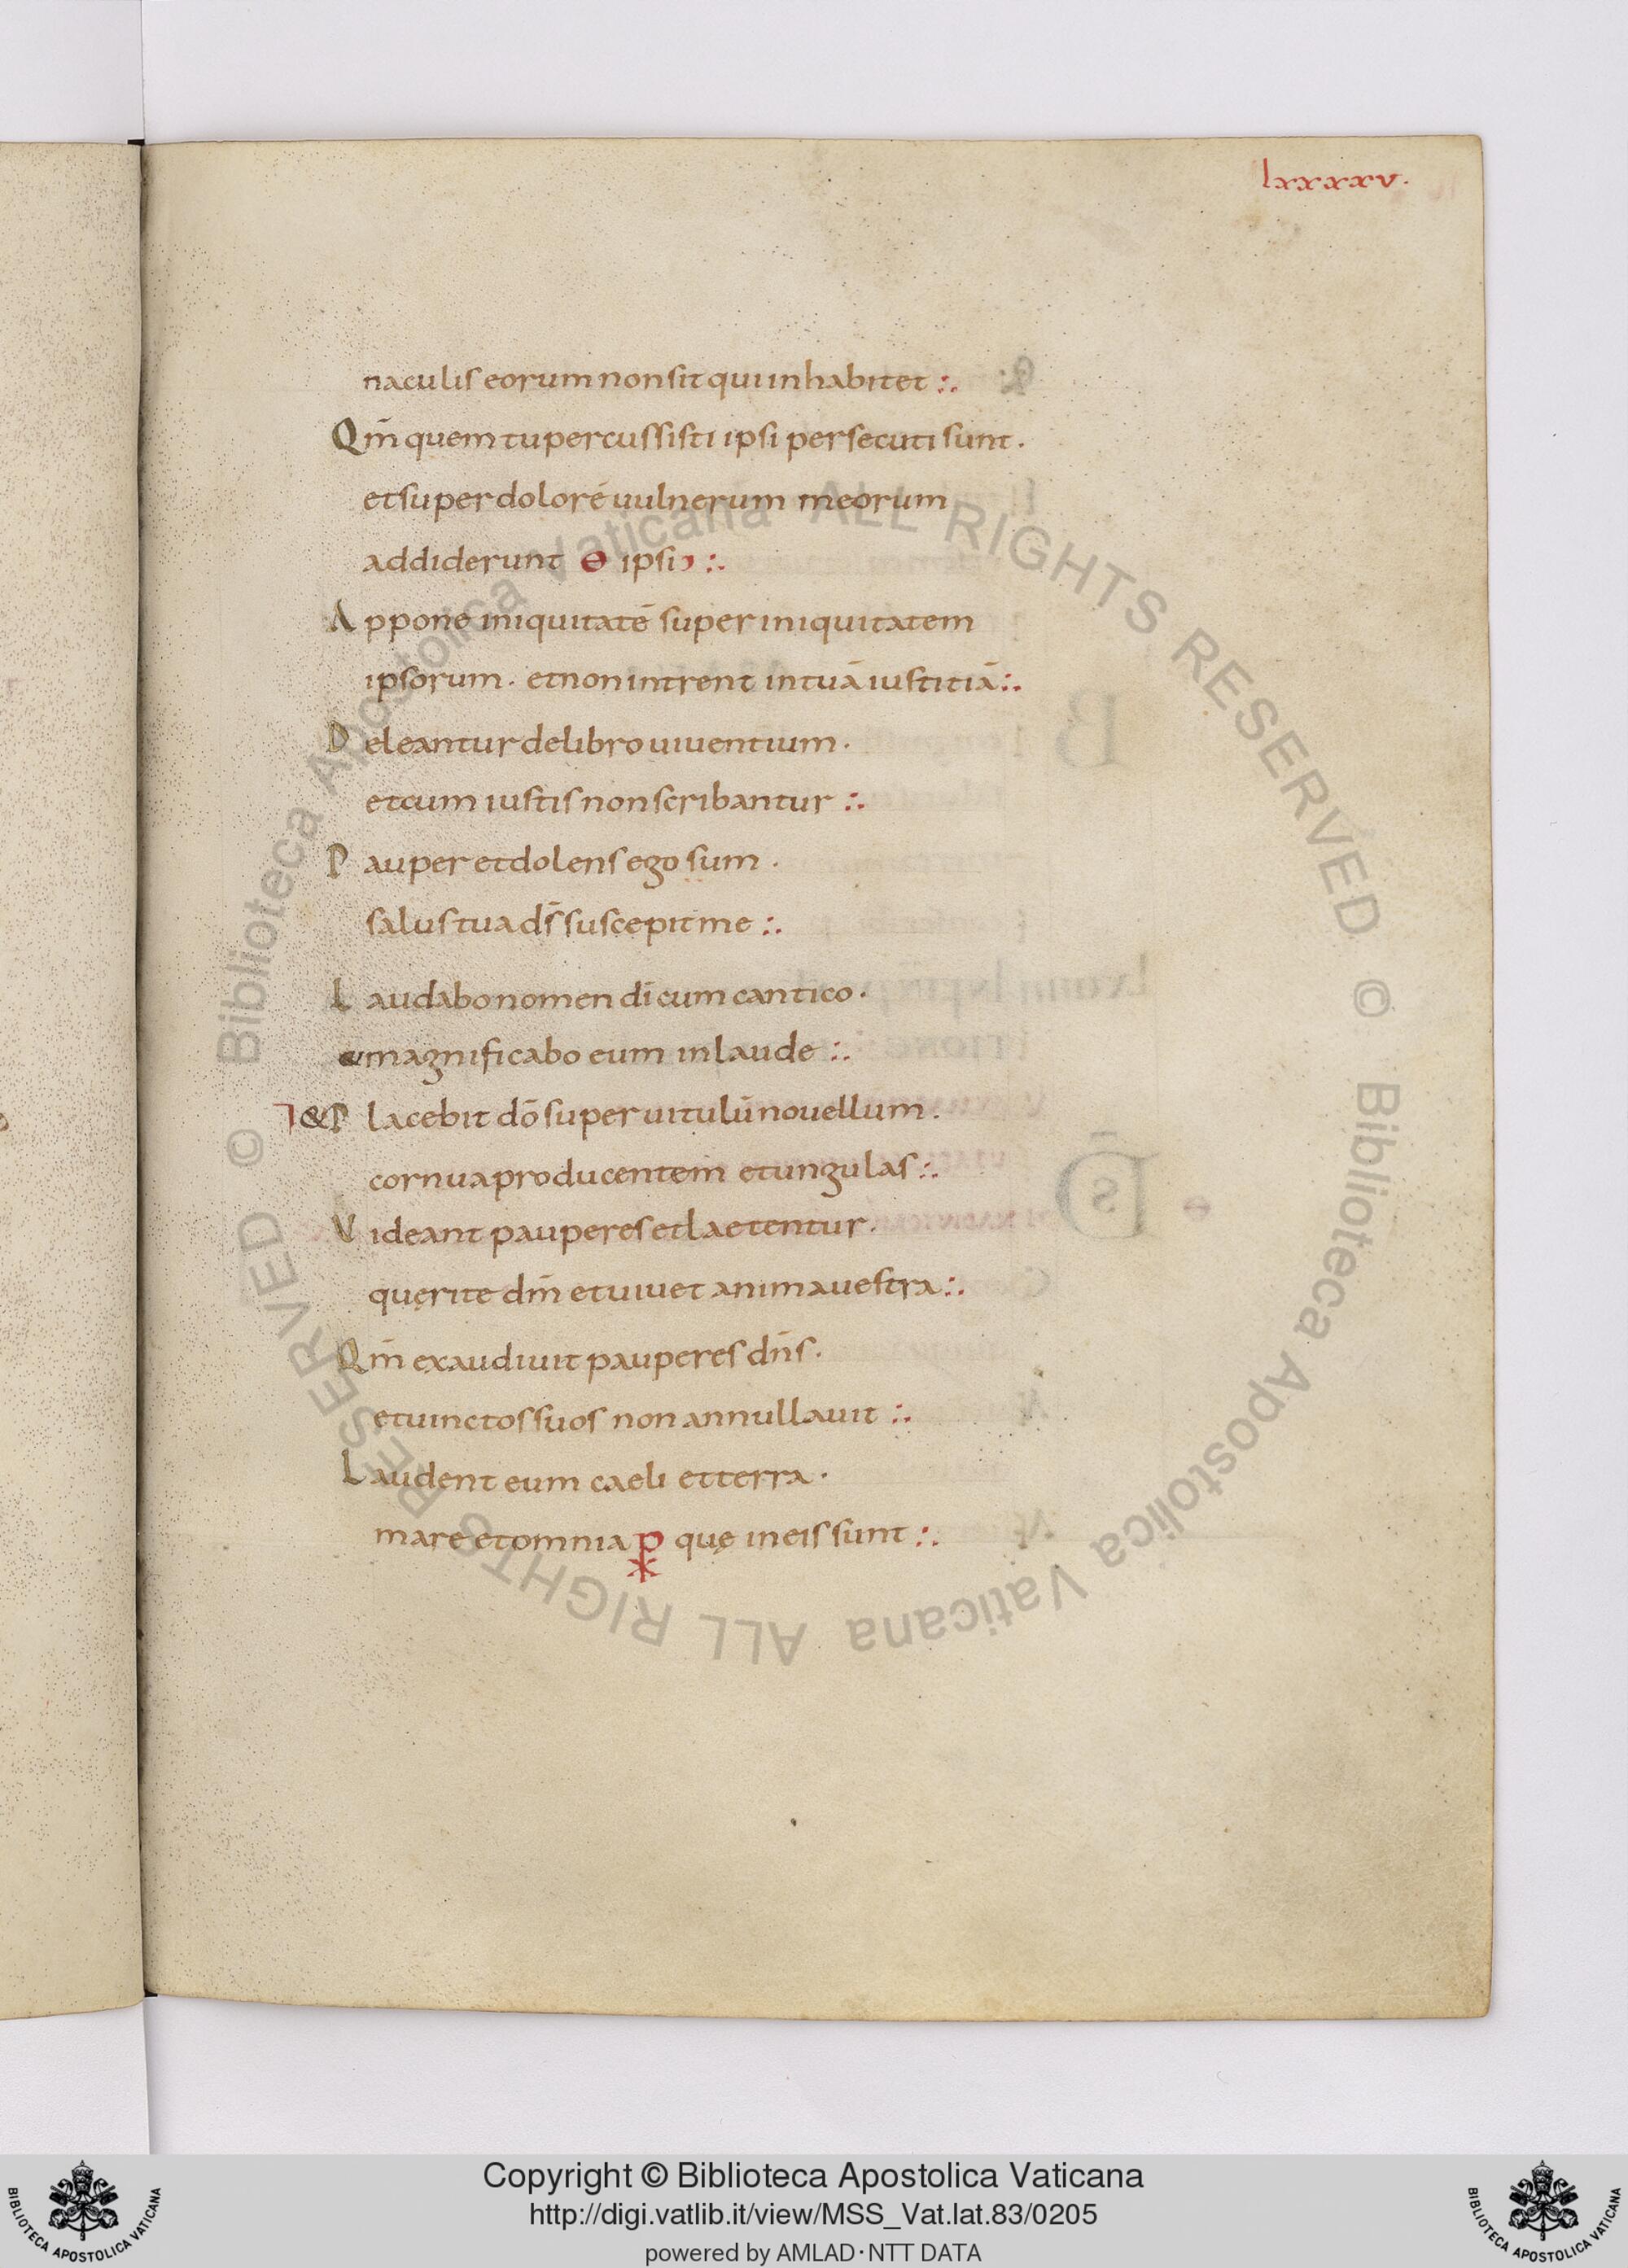 lxxxxv.
naculis eorum non sit qui inhabitet :.
Qm̄ quem tu percussisti ipsi persecuti sunt .
et super dolorē uulnerum meorum
addiderunt ɵ ipsi :.
Appone iniquitatē super iniquitatem
ipsorum . et non intrent in tuā iustitiā :.
Deleantur de libro uiuentium .
et cum iustis non scribantur :.
Pauper et dolens ego sum .
salus tua dš suscepit me :.
Laudabo nomen dī cum cantico .
magnificabo eum in laude :.
& Placebit dō super uitulū nouellum .
cornua producentem et ungulas :.
Videant pauperes et laetentur .
quęrite dm̄ et uiuet anima uestra :.
Qm̄ exaudiuit pauperes dn̄s .
et uinctos suos non annullauit :.
Laudent eum caeli et terra .
mare et omnia quę in eis sunt :.
© Biblioteca Apostolica Vaticana ALL RIGHTS RESERVED © Biblioteca Apostolica Vaticana ALL RIGHTS RESERVED
Copyright © Biblioteca Apostolica Vaticana
http://digi.vatlib.it/view/MSS_Vat.lat.83/0205
powered by AMLAD·NTT DATA
BIBLIOTECA APOSTOLICA VATICANA
BIBLIOTECA APOSTOLICA VATICANA